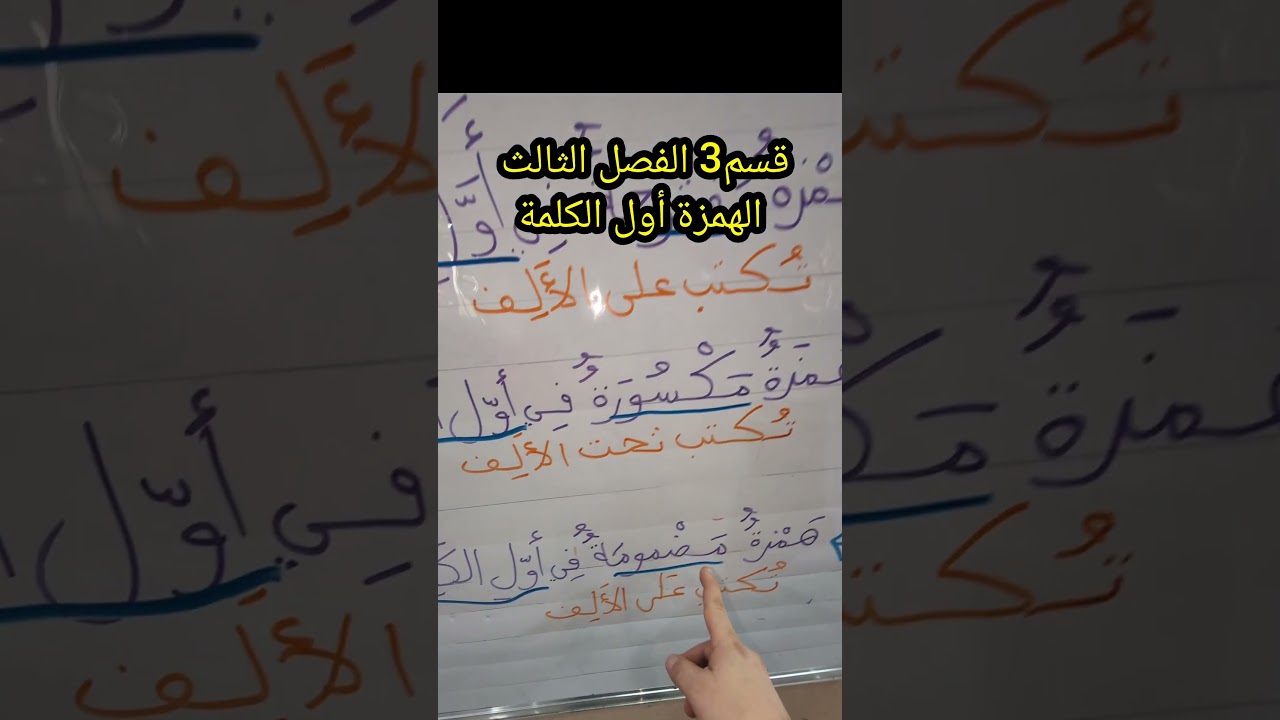 قسم3 الفصل الثالث
الهمزة أول الكلمة
أَوَّل
تُكتب على الأَلِف
هَمْزَةٌ مَكْسُورَةٌ فِي أَوّل
تُكتب تحت الأَلِف
هَمْزةٌ مَضْمومَةٌ فِي أَوّل
تُكتب عَلى الأَلِف